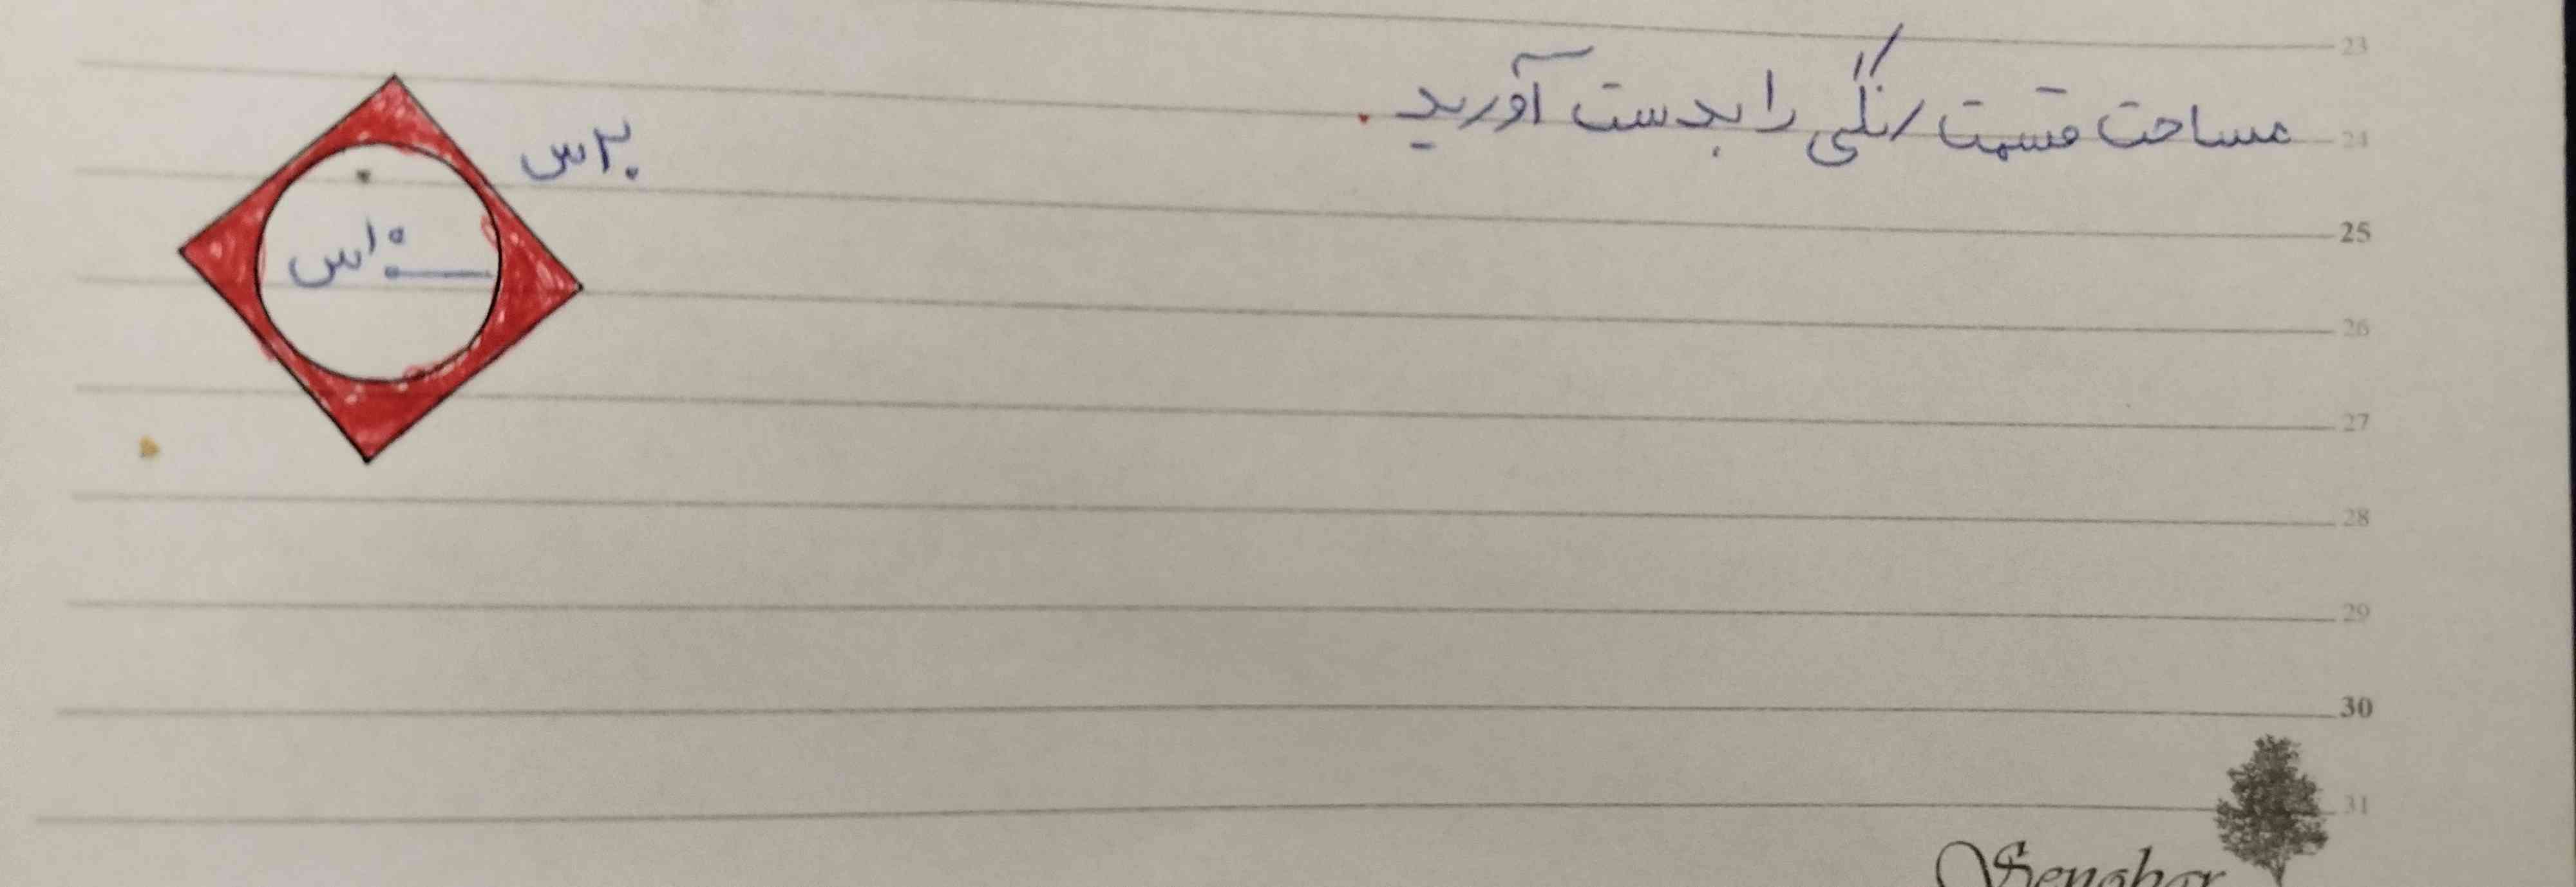 23
مساحت قسمت رنگی را بدست آورید.
24
۲۰س
۱۰س
25
26
27
28
29
30
31
Senobar